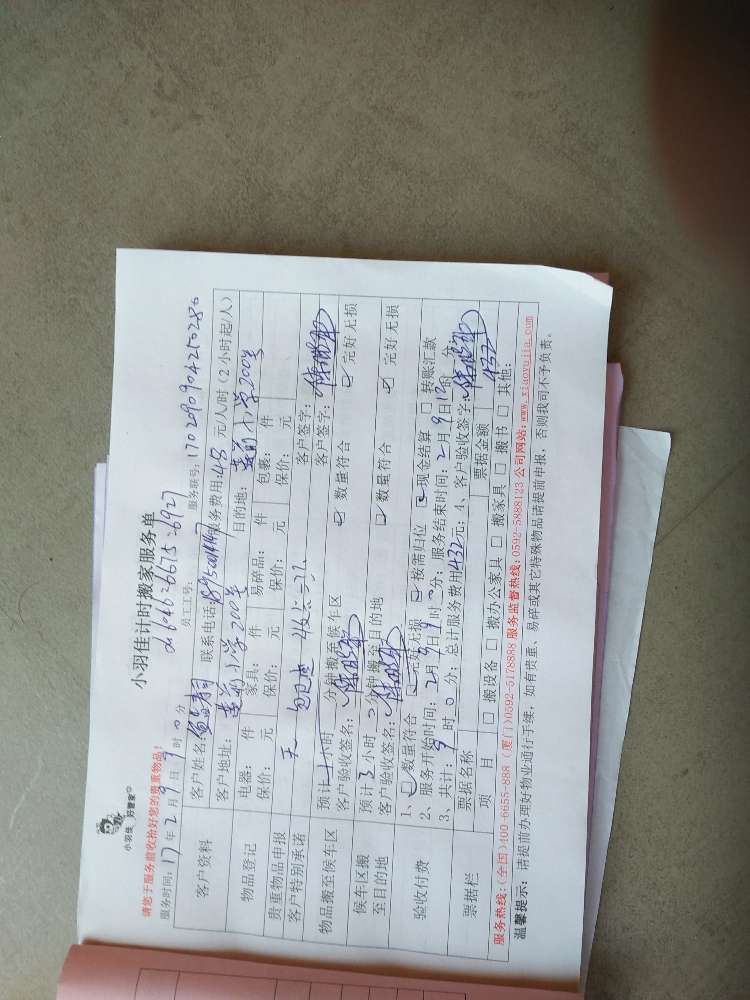 小羽佳 好管家
小羽佳计时搬家服务单
260462667526927
请您于服务前收拾好您的贵重物品!
服务时间: 17年2月9日9时0分 员工工号: 服务联号: 1702090904250280
客户资料 客户姓名: 联系电话: 服务费用: 48 元/人/时 (2小时起/人)
客户地址: 莲前小学200号 目的地: 莲前小学200号
物品登记 电器: 件 家具: 件 易碎品: 件 包裹: 件
保价: 元 保价: 元 保价: 元 保价: 元
贵重物品申报 无 客户签字:
客户特别承诺 客户签字:
物品搬至候车区 预计 小时 分钟搬至候车区
客户验收签名: ☑ 数量符合 ☑ 完好无损
候车区搬至目的地 预计3小时0分钟搬至目的地
客户验收签名: ☑ 数量符合 ☑ 完好无损
验收付费 1、☑ 数量符合 ☑ 完好无损 ☑ 按需归位 ☑ 现金结算 □ 转账汇款
2、服务开始时间: 2月9日9时0分; 服务结束时间: 2月9日12时 分;
3、共计: 9时0分; 总计服务费用432元; 4、客户验收签字:
票据栏 票据名称 票据金额 432
项 目 □ 搬设备 □ 搬办公家具 □ 搬家具 □ 搬书 □ 其他:
服务热线:(全国)400-6655-888 (厦门)0592-5178888 服务监督热线: 0592-5888123 公司网站: www.xiaoyujia.com
温馨提示: 请提前办理好物业通行手续, 如有贵重、易碎或其它特殊物品请提前申报, 否则我司不予负责。